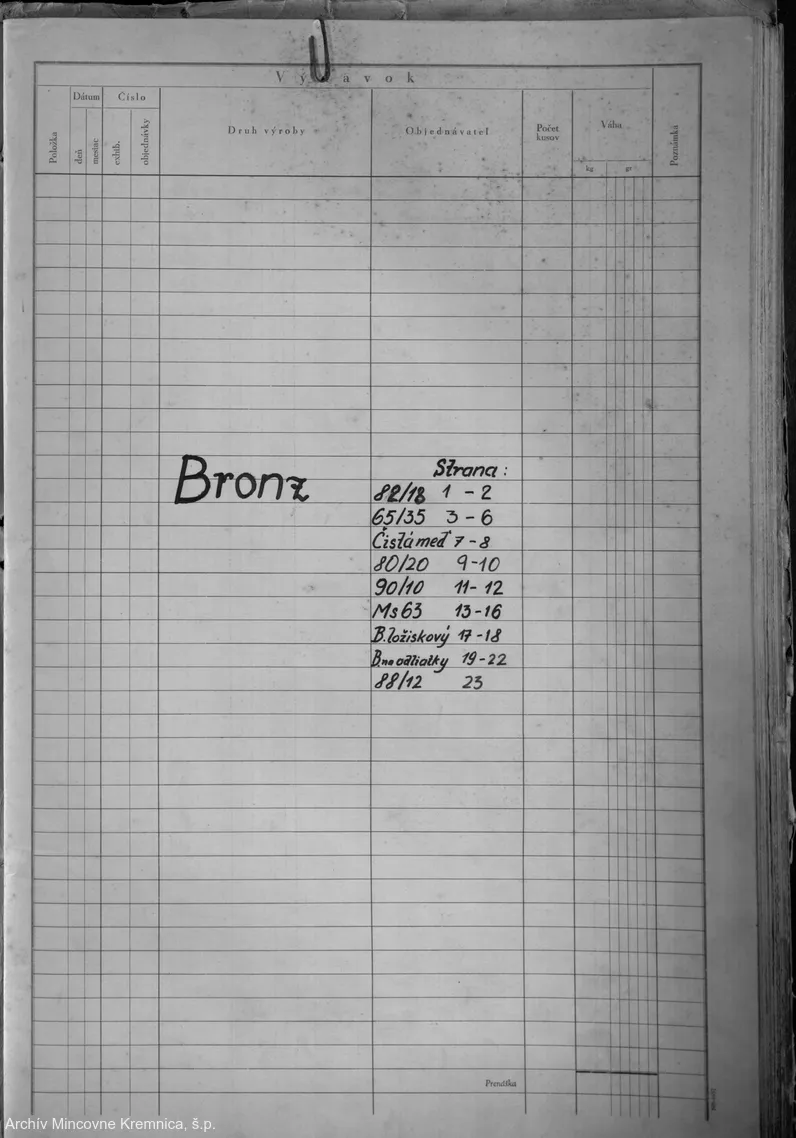 Výtavok
Dátum
Číslo
Položka
deň
mesiac
exhib.
objednávky
Druh výroby
Objednávateľ
Počet
kusov
Váha
kg
gr
Poznámka
Bronz
Strana :
82/18 1 - 2
65/35 3 - 6
Čistá meď 7 - 8
80/20 9 - 10
90/10 11 - 12
Ms 63 13 - 16
B. ložiskový 17 - 18
B. na odliatky 19 - 22
88/12 23
Prenáška
Archív Mincovne Kremnica, š.p.